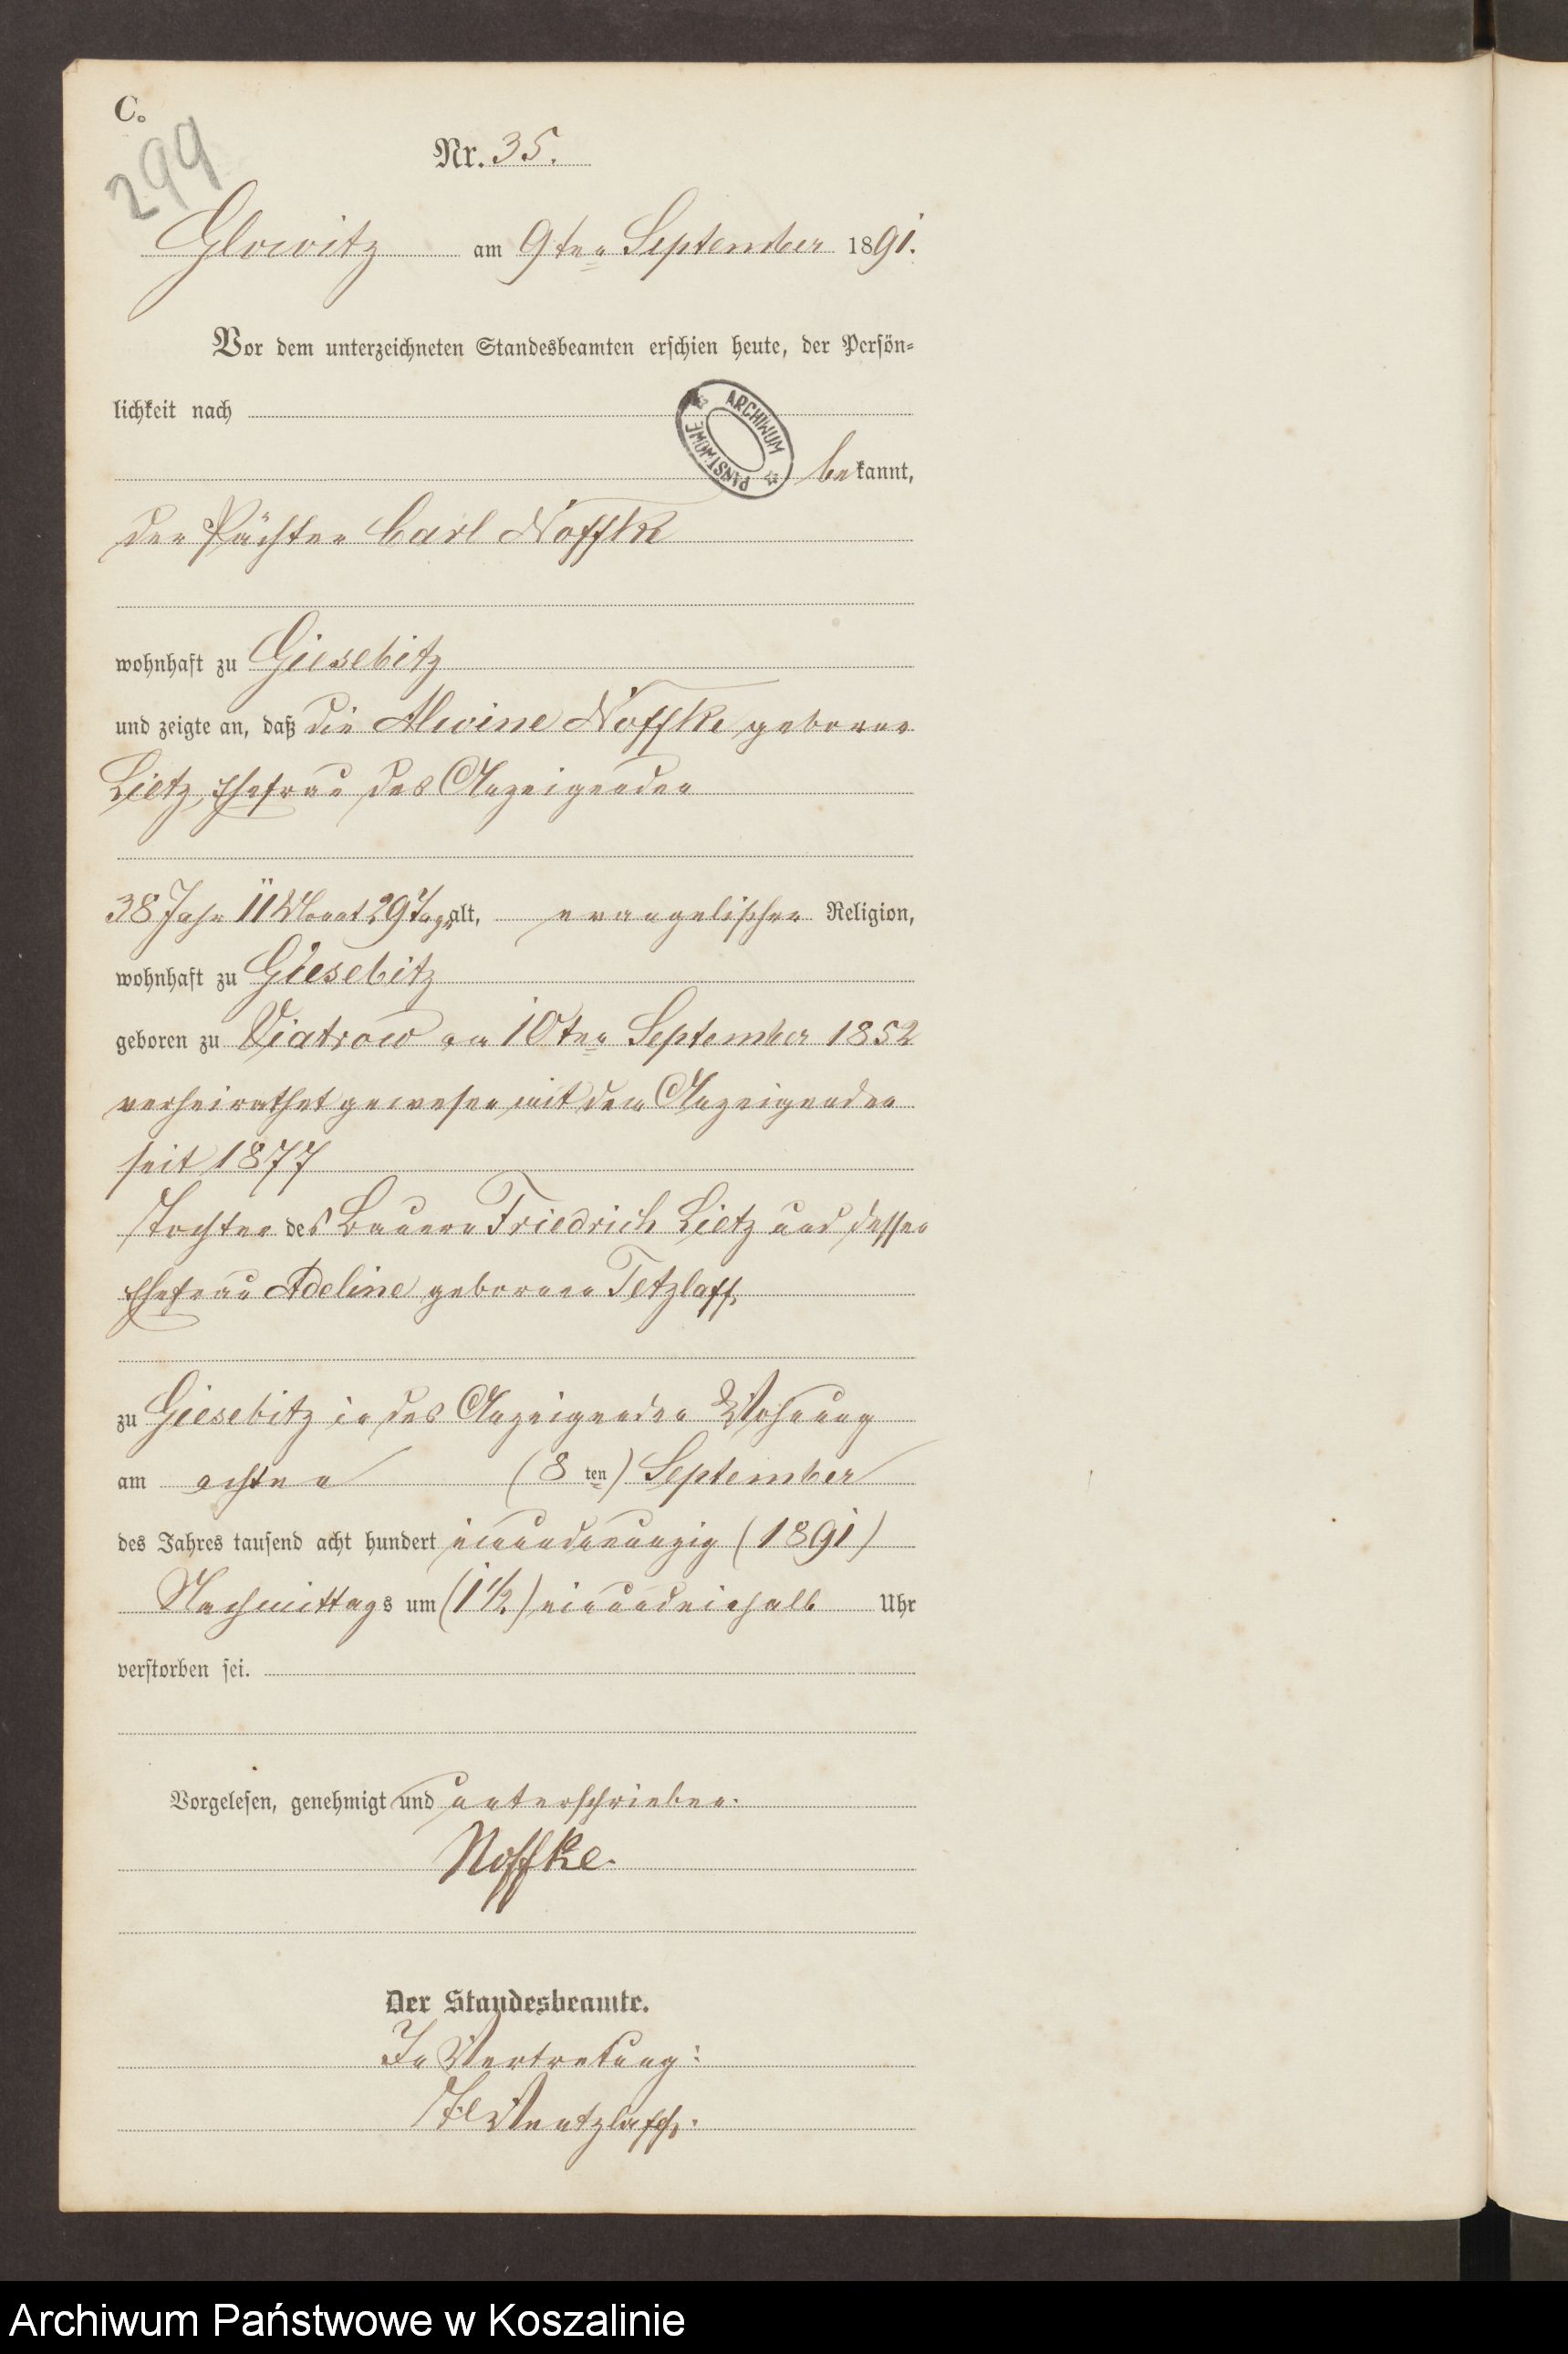 C.
299
Nr. 35.
Glowitz am 9ten September 1891.
Vor dem unterzeichneten Standesbeamten erschien heute, der Persön-
lichkeit nach
ARCHIWUM PAŃSTWOWE
bekannt,
der Pächter Carl Noffke
wohnhaft zu Giesebitz
und zeigte an, daß die Alwine Noffke geborne
Lietz, Ehefrau des Anzeigenden
38 Jahr 11 Monat 29 Tage alt, evangelischer Religion,
wohnhaft zu Giesebitz
geboren zu Viatrow am 10ten September 1852
verheirathet gewesen mit dem Anzeigenden
seit 1877
Tochter des Bauern Friedrich Lietz und dessen
Ehefrau Adeline gebornen Tetzlaff,
zu Giesebitz in des Anzeigenden Wohnung
am achten (8 ten) September
des Jahres tausend acht hundert einundneunzig (1891)
Nachmittags um (1 1/2) einundeinhalb Uhr
verstorben sei.
Vorgelesen, genehmigt und unterschrieben.
Noffke.
Der Standesbeamte.
In Vertretung:
Wentzlaff.
Archiwum Państwowe w Koszalinie